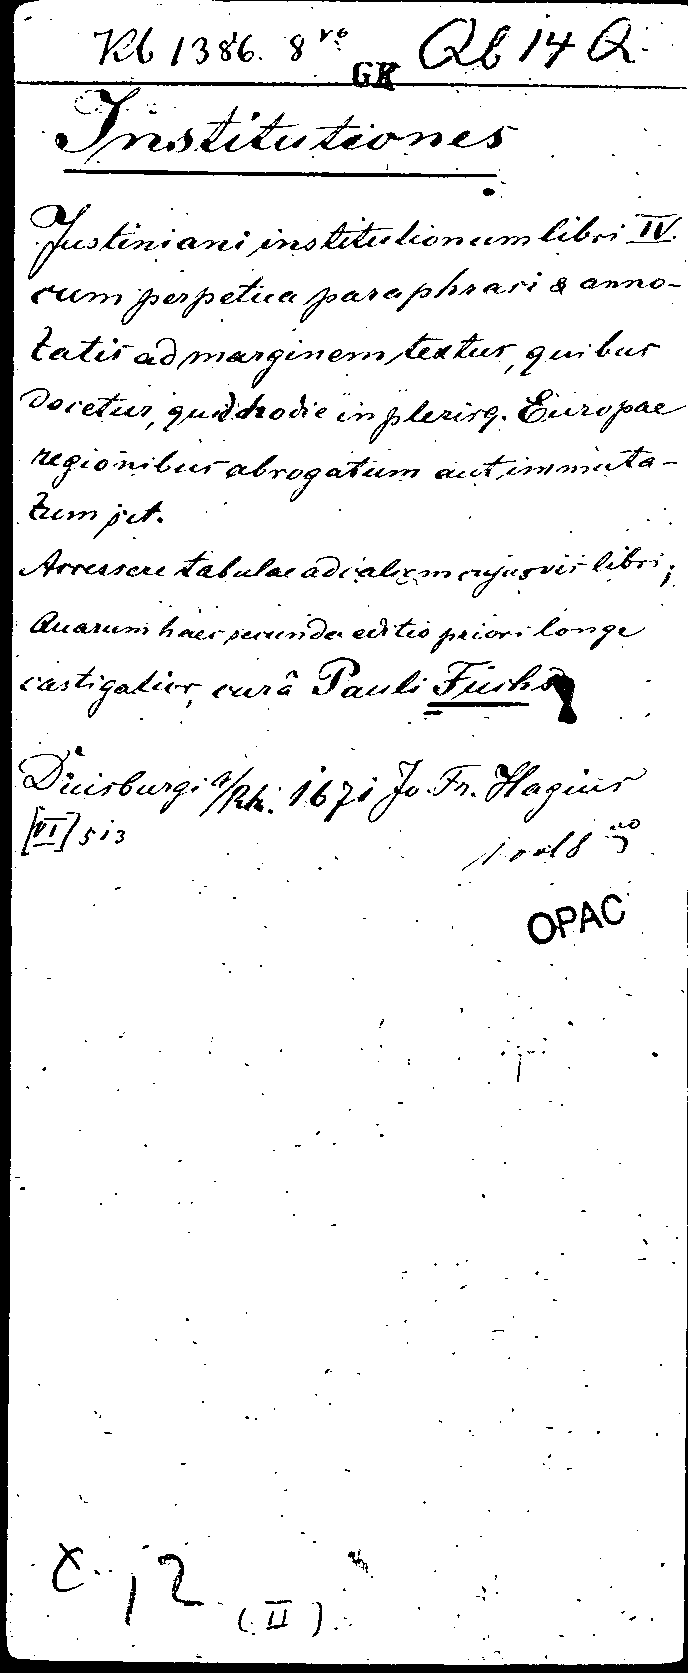 Kb 1386. 8vo GK Qb 14 Q
Institutiones
Justiniani institutionum libri IV.
cum perpetua paraphrasi & anno-
tatis ad marginem textus, quibus
docetur, quid hodie in plerisq. Europae
regionibus abrogatum aut immuta-
tum sit.
Accessere tabulae ad calcem cujusvis libri;
Quarum haec secunda editio priori longe
castigatior, curâ Pauli Fuchs
Duisburgi a/Rh. 1671 Jo. Fr. Hagius
[VI] 513
1 vol 8vo
OPAC
C. 12
(II)